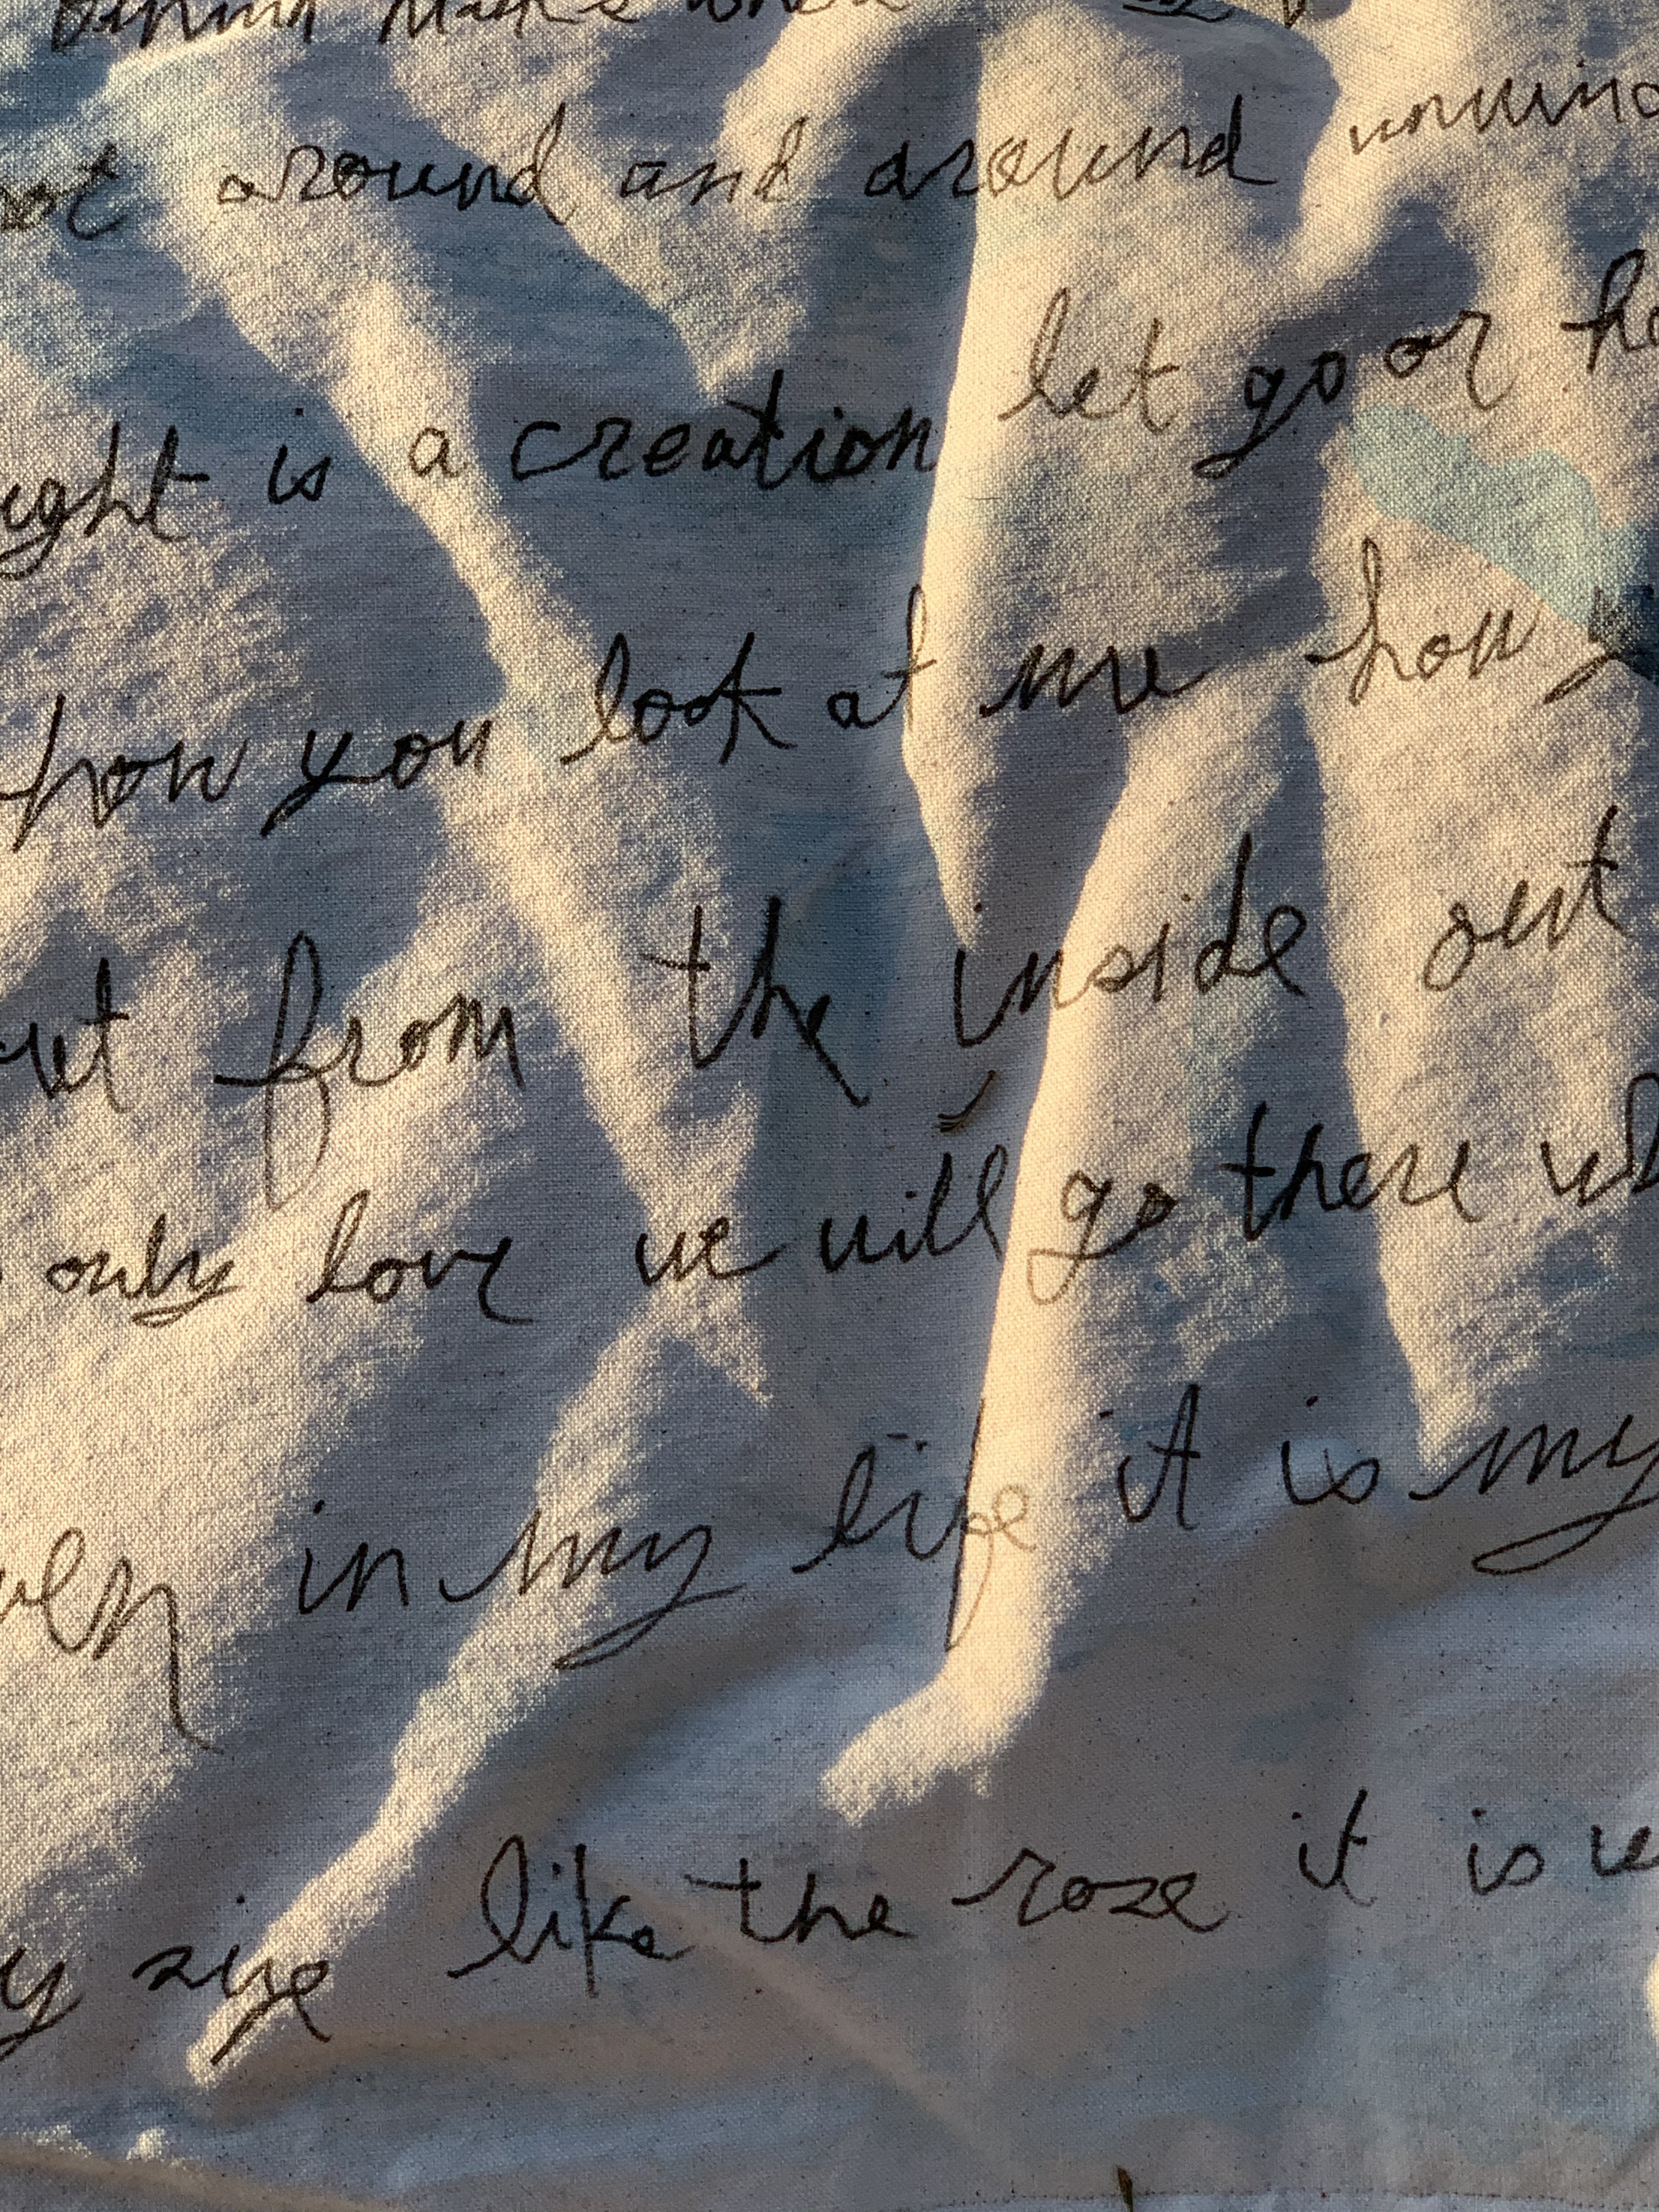 Behind
around and around unwind
ght is a creation let go or ho
how you look at me how y
ut from the inside out
only love we will go there wh
ven in my life it is my
y size like the roze it is